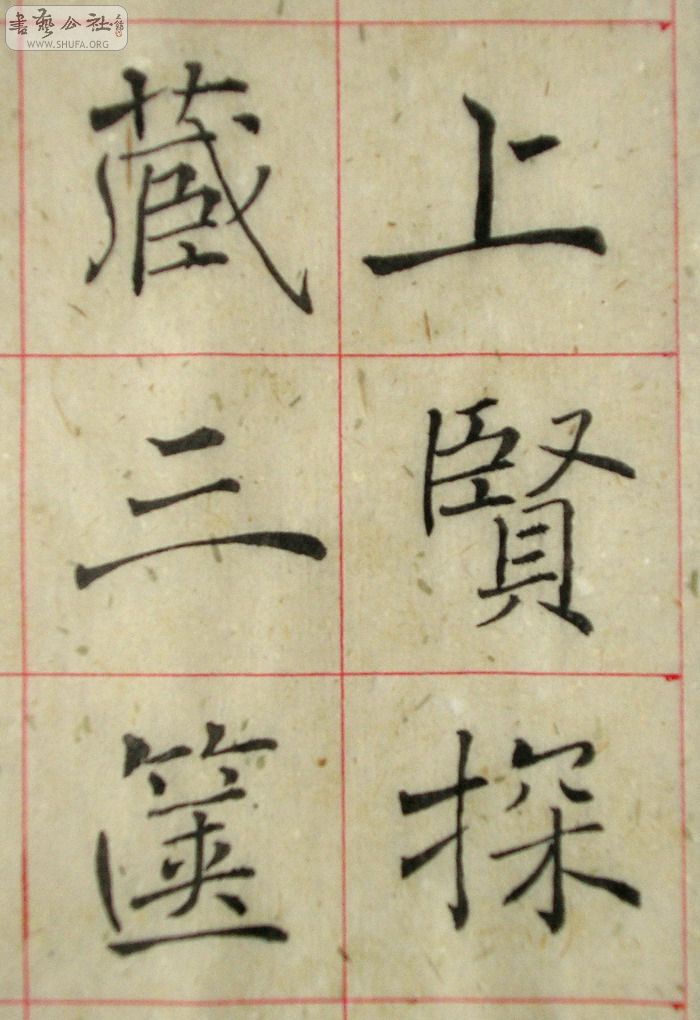 上賢探
藏三篋
書藝公社
WWW.SHUFA.ORG